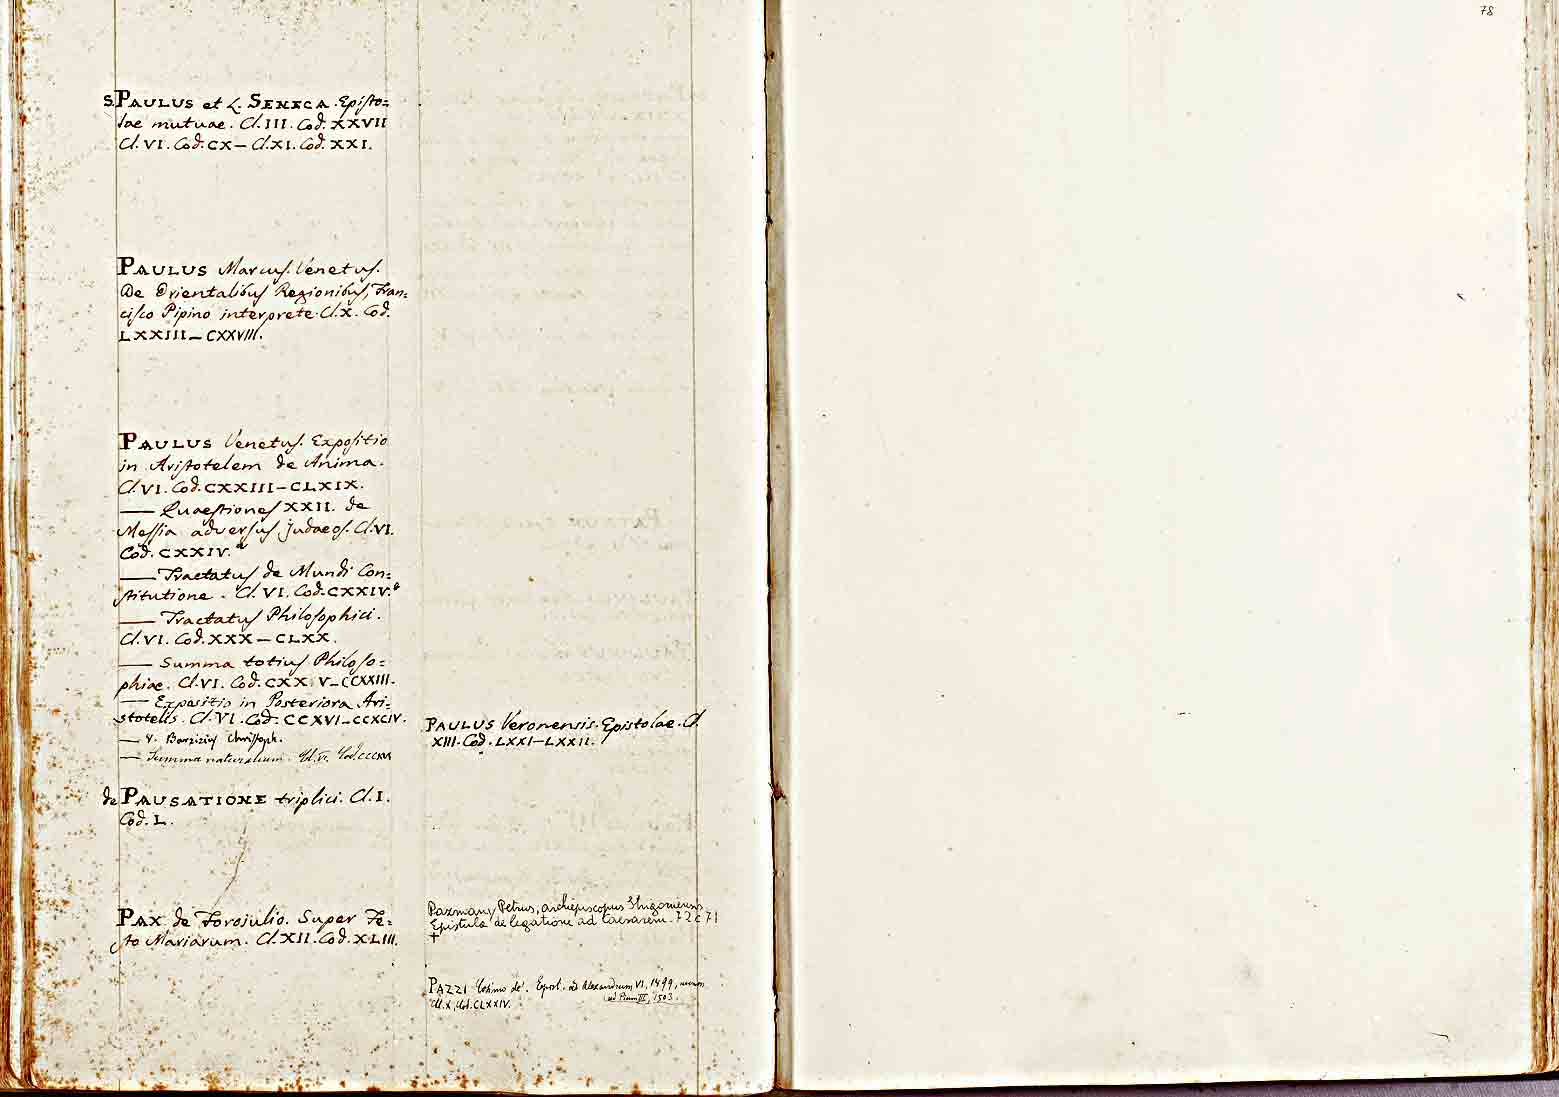 78
S. PAULUS et L. SENECA. Episto=
lae mutuae. Cl. III. Cod. XXVII
Cl. VI. Cod. CX — Cl. XI. Cod. XXI.
PAULUS Marcus. Venetus.
De Orientalibus Regionibus, Fran=
cisco Pipino interprete. Cl. X. Cod.
LXXIII — CXXVIII.
PAULUS Venetus. Expositio
in Aristotelem de Anima.
Cl. VI. Cod. CXXIII — CLXIX.
— Quaestiones XXII. de
Messia adversus Judaeos. Cl. VI.
Cod. CXXIV. a
— Tractatus de Mundi Con=
stitutione. Cl. VI. Cod. CXXIV.
— Tractatus Philosophici.
Cl. VI. Cod. XXX — CLXX.
— Summa totius Philoso=
phiae. Cl. VI. Cod. CXXV — CCXXIII.
— Expositio in Posteriora Ari=
stotelis. Cl. VI. Cod. CCXVI — CCXCIV.
— V. Barzizius Christoph.
— Summa naturalium. Cl. VI. Cod. CCCXVI
de PAUSATIONE triplici. Cl. I.
Cod. L.
PAX de Forojulio. Super Fe=
sto Mariarum. Cl. XII. Cod. XLIII.
PAULUS Veronensis. Epistolae. Cl.
XIII. Cod. LXXI — LXXII.
Pazmany Petrus, archiepiscopus Strigoniensis
Epistula de legatione ad Caesarem. 72 c 71
+
PAZZI Cosimo de'. Epist. ad Alexandrum VI, 1499,
ad Pium III, 1503.
Cl. X, Cod. CLXXIV.